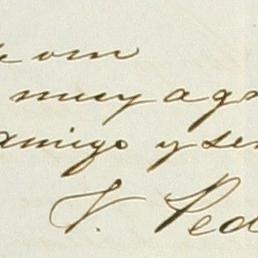 muy agr
amigo y se
V. Ped